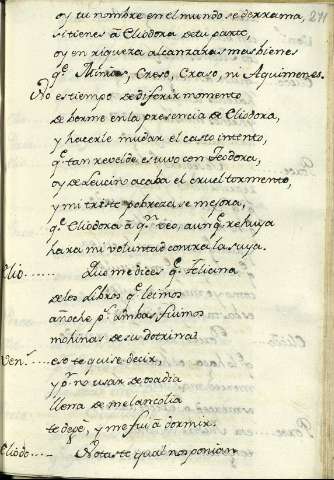 241
oy tu nombre en el mundo se derrama,
si tienes â Cliodora de tu parte,
oy en riqueza alcanzaras mas bienes
q̃. Mimos, Creso, Craso, ni Aquimenes.
No es tiempo de diferir momento
de horme en la presencia de Cliodora,
y hacerle mudar el casto intento,
q̃ tan revelde estuvo con Teodora,
oy de Leucino acaba el cruel tormento,
y mi triste pobreza se mejora,
q̃. Cliodora â qn. veo, aunq̃. rehuya
hara mi voluntad contra la suya.
Clio...... Que me dices q̃. Feliciana
de los libros q̃ leimos
anoche pr. ambas, fuimos
mohinas de su dotrina?
Ven.a.... eso te quise decir,
y pr. no usar de osadia
llena de melancolia
te dejè, y me fui â dormir.
Cliodo.... Notaste qual nos ponian